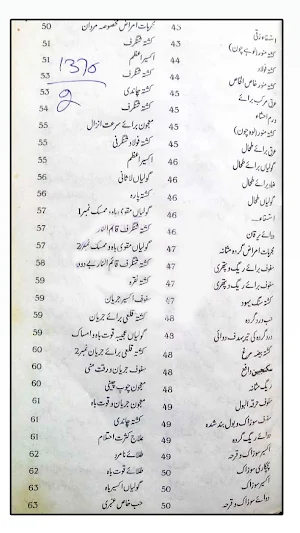 استسقاء زقی 43
کشتہ منور (لوہے چون) 43
کشتہ فولاد 44
کشتہ منور خاص الخاص 44
عرق مرکب برائے 45
ورم احشاء 45
کشتہ منور (لوہ چون) 45
عرق برائے طحال 45
گولیاں برائے طحال 45
ضماد برائے طحال 45
گولیاں طحال 46
استسقاء 46
دوائے یرقان 46
مجربات امراض گردہ مثانہ 47
سفوف برائے ریگ و پتھری 47
سفوف برائے ریگ و پتھری 47
کشتہ سنگ یہود 47
حب درد گردہ 48
درد گردہ کی تیر بہدف دوائی 48
کشتہ بیضہ مرغ 48
سکنجبین دافع 48
ریگ مثانہ 48
سفوف حرقۃ البول 49
سفوف سوزاک و بول بند شدہ 49
دوائے ریگ گردہ 49
اکسیر سوزاک و قرحہ 49
پچکاری سوزاک 50
اکسیر سوزاک 50
دوائے سوزاک و قرحہ 50
مجربات امراض مخصوصہ مردان 50
کشتہ شنگرف 51
اکسیر اعظم 51
کشتہ شنگرف 53
کشتہ چاندی 53
کشتہ شنگرف 54
معجون برائے سرعت انزال 55
کشتہ فولاد شنگرفی 55
اکسیر اعظم 55
گولیاں لاثانی 56
کشتہ پارہ 56
گولیاں مقوی باہ و ممسک نمبر 1 57
کشتہ شنگرف قائم النار 57
گولیاں مقوی باہ و ممسک نمبر 2 57
کشتہ شنگرف قائم النار بے دود 58
کشتہ نقرہ 59
سفوف اکسیر جریان 59
کشتہ قلعی برائے جریان 59
گولیاں عجیبہ قوت باہ و امساک 59
کشتہ قلعی برائے جریان نمبر 2 60
سفوف جریان و رقت منی 60
معجون چوب چینی 60
معجون جریان و قوت باہ 61
کشتہ چاندی 61
علاج کثرت احتلام 61
طلائے نامرد 62
طلائے قوت باہ 62
گولیاں اکسیر باہ 63
حب خاص عنبری 63
1370
2